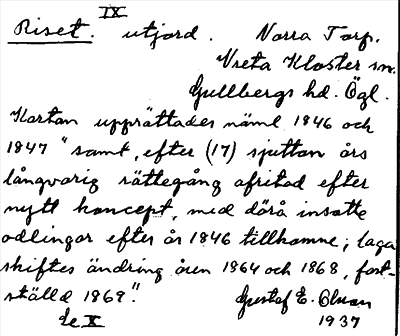 IX
Riset. utjord. Norra Torp.
Vreta Kloster sn.
Gullbergs hd. Ögl.
Kartan upprättades näml 1846 och
1847 "samt, efter (17) sjuttan års
långvarig rättegång afritad efter
nytt koncept, med dörå insatte
odlingar efter år 1846 tillkomne; laga
skiftes ändring åren 1864 och 1868, fast-
ställd 1869."
Gustaf E. Olsson
se X 1937